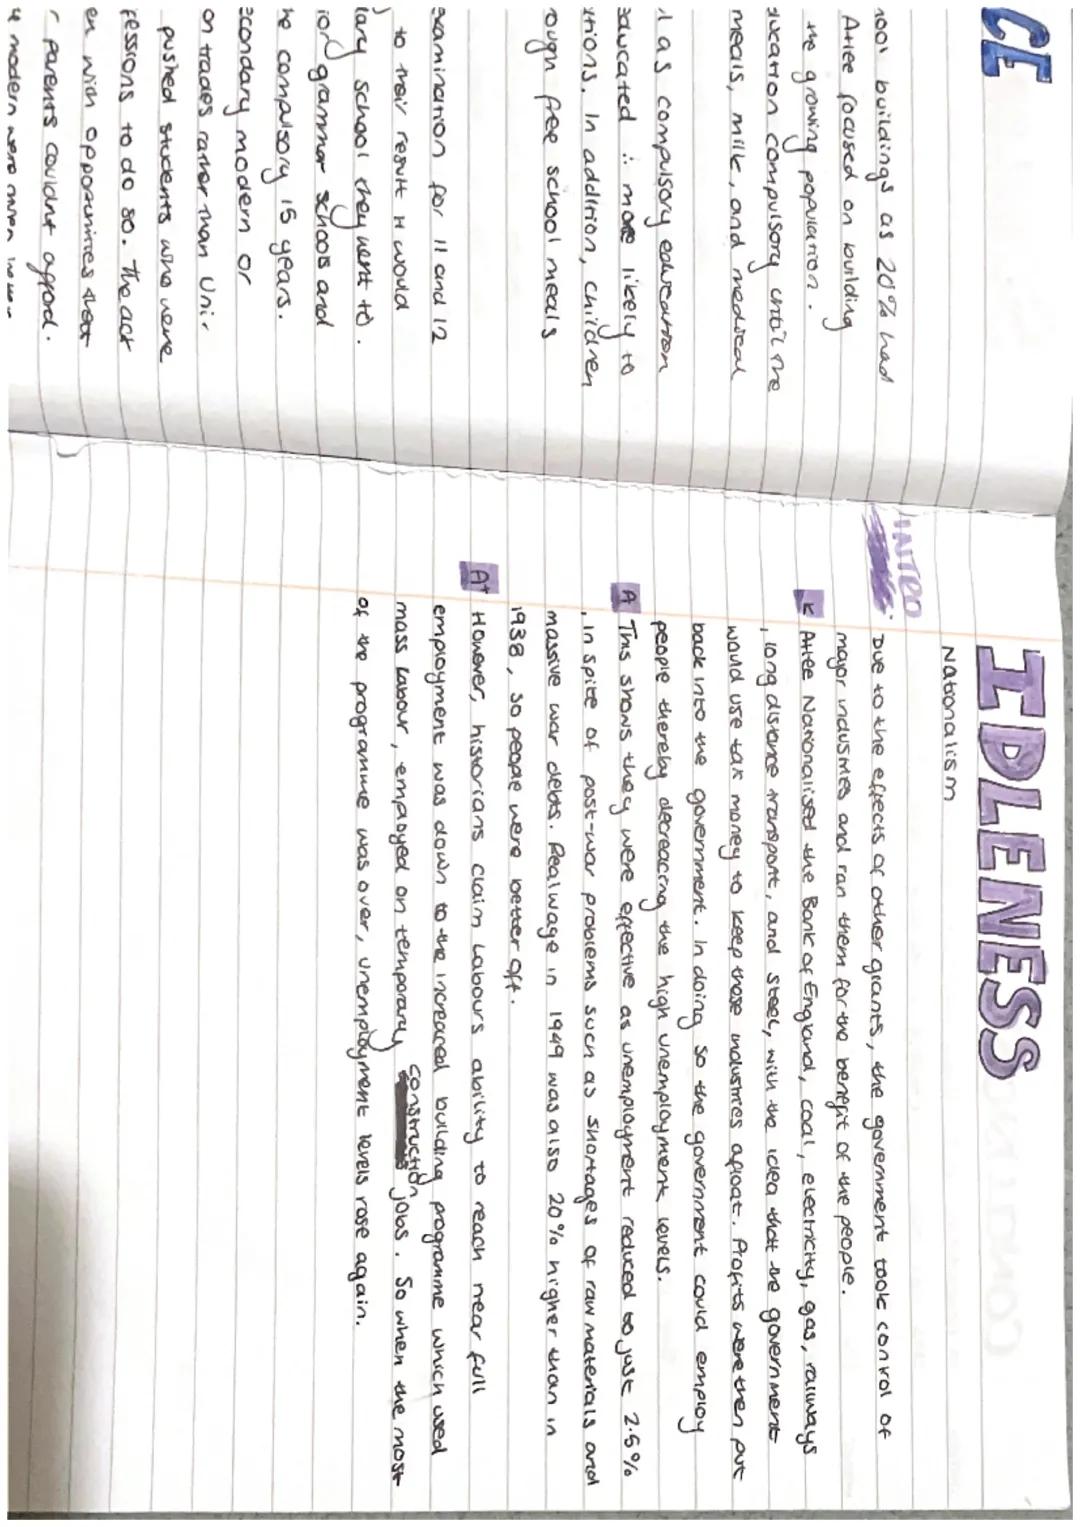 CE
ool buildings as 20% had
Attlee focused on building
the growing population.
ducation compulsory until the
meals, milk, and medical
l as compulsory education
educated ∴ more likely to
itions. In addition, children
rough free school meals
examination for 11 and 12
to their result it would
lary school they went to.
ior grammar schools and
he compulsory 15 years.
econdary modern or
on trades rather than Uni.
pushed students who were
fessions to do so. The act
en with opportunities that
r parents couldnt afford.
modern were
IDLENESS
Nationalism
INTRO
Due to the effects of other giants, the government took control of
major industries and ran them for the benefit of the people.
K Attlee Nationalised the Bank of England, coal, electricity, gas, railways
, long distance transport, and steel, with the idea that the government
would use tax money to keep those industries afloat. Profits were then put
back into the government. In doing so the government could employ
people thereby decreacing the high unemployment levels.
A This shows they were effective as unemployment reduced to just 2.5%
, in spite of post-war problems such as shortages of raw materials and
massive war debts. Real wage in 1949 was also 20% higher than in
1938, so people were better off.
A+ However, historians claim Labours ability to reach near full
employment was down to the increaced building programme which used
mass labour, employed on temporary construction jobs. So when the most
of the programme was over, unemployment levels rose again.